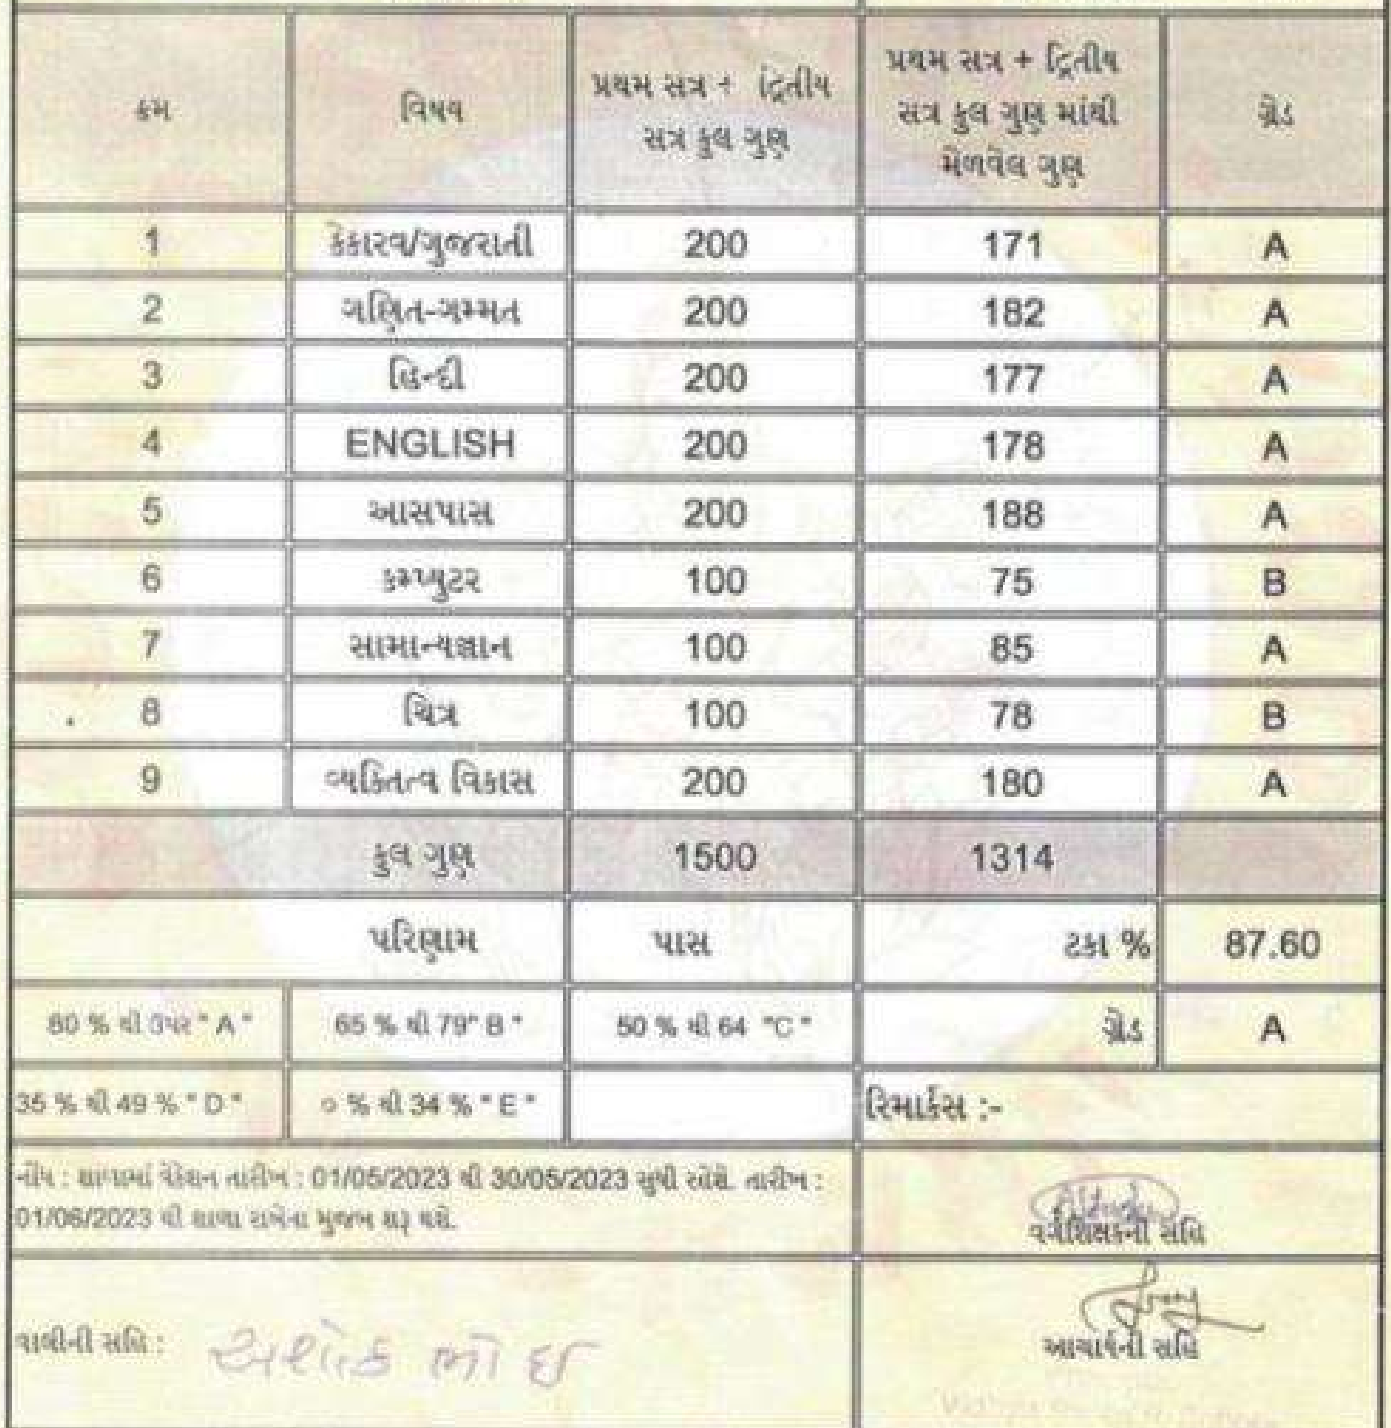 ક્રમ વિષય પ્રથમ સત્ર + દ્વિતીય સત્ર કુલ ગુણ પ્રથમ સત્ર + દ્વિતીય સત્ર કુલ ગુણ માંથી મેળવેલ ગુણ ગ્રેડ
1 કેકારવ/ગુજરાતી 200 171 A
2 ગણિત-ગમ્મત 200 182 A
3 હિન્દી 200 177 A
4 ENGLISH 200 178 A
5 આસપાસ 200 188 A
6 કમ્પ્યુટર 100 75 B
7 સામાન્યજ્ઞાન 100 85 A
8 ચિત્ર 100 78 B
9 વ્યક્તિત્વ વિકાસ 200 180 A
કુલ ગુણ 1500 1314
પરિણામ પાસ ટકા % 87.60
80 % થી ઉપર " A " 65 % થી 79" B " 50 % થી 64 "C " ગ્રેડ A
35 % થી 49 % " D " ૦ % થી 34 % " E " રિમાર્કસ :-
નોંધ : શાળામાં વેકેશન તારીખ : 01/05/2023 થી 30/05/2023 સુધી રહેશે. તારીખ :
01/06/2023 થી શાળા રાબેતા મુજબ શરૂ થશે.
વર્ગશિક્ષકની સહિ
વાલીની સહિ : અશોક ભાઈ
આચાર્યની સહિ